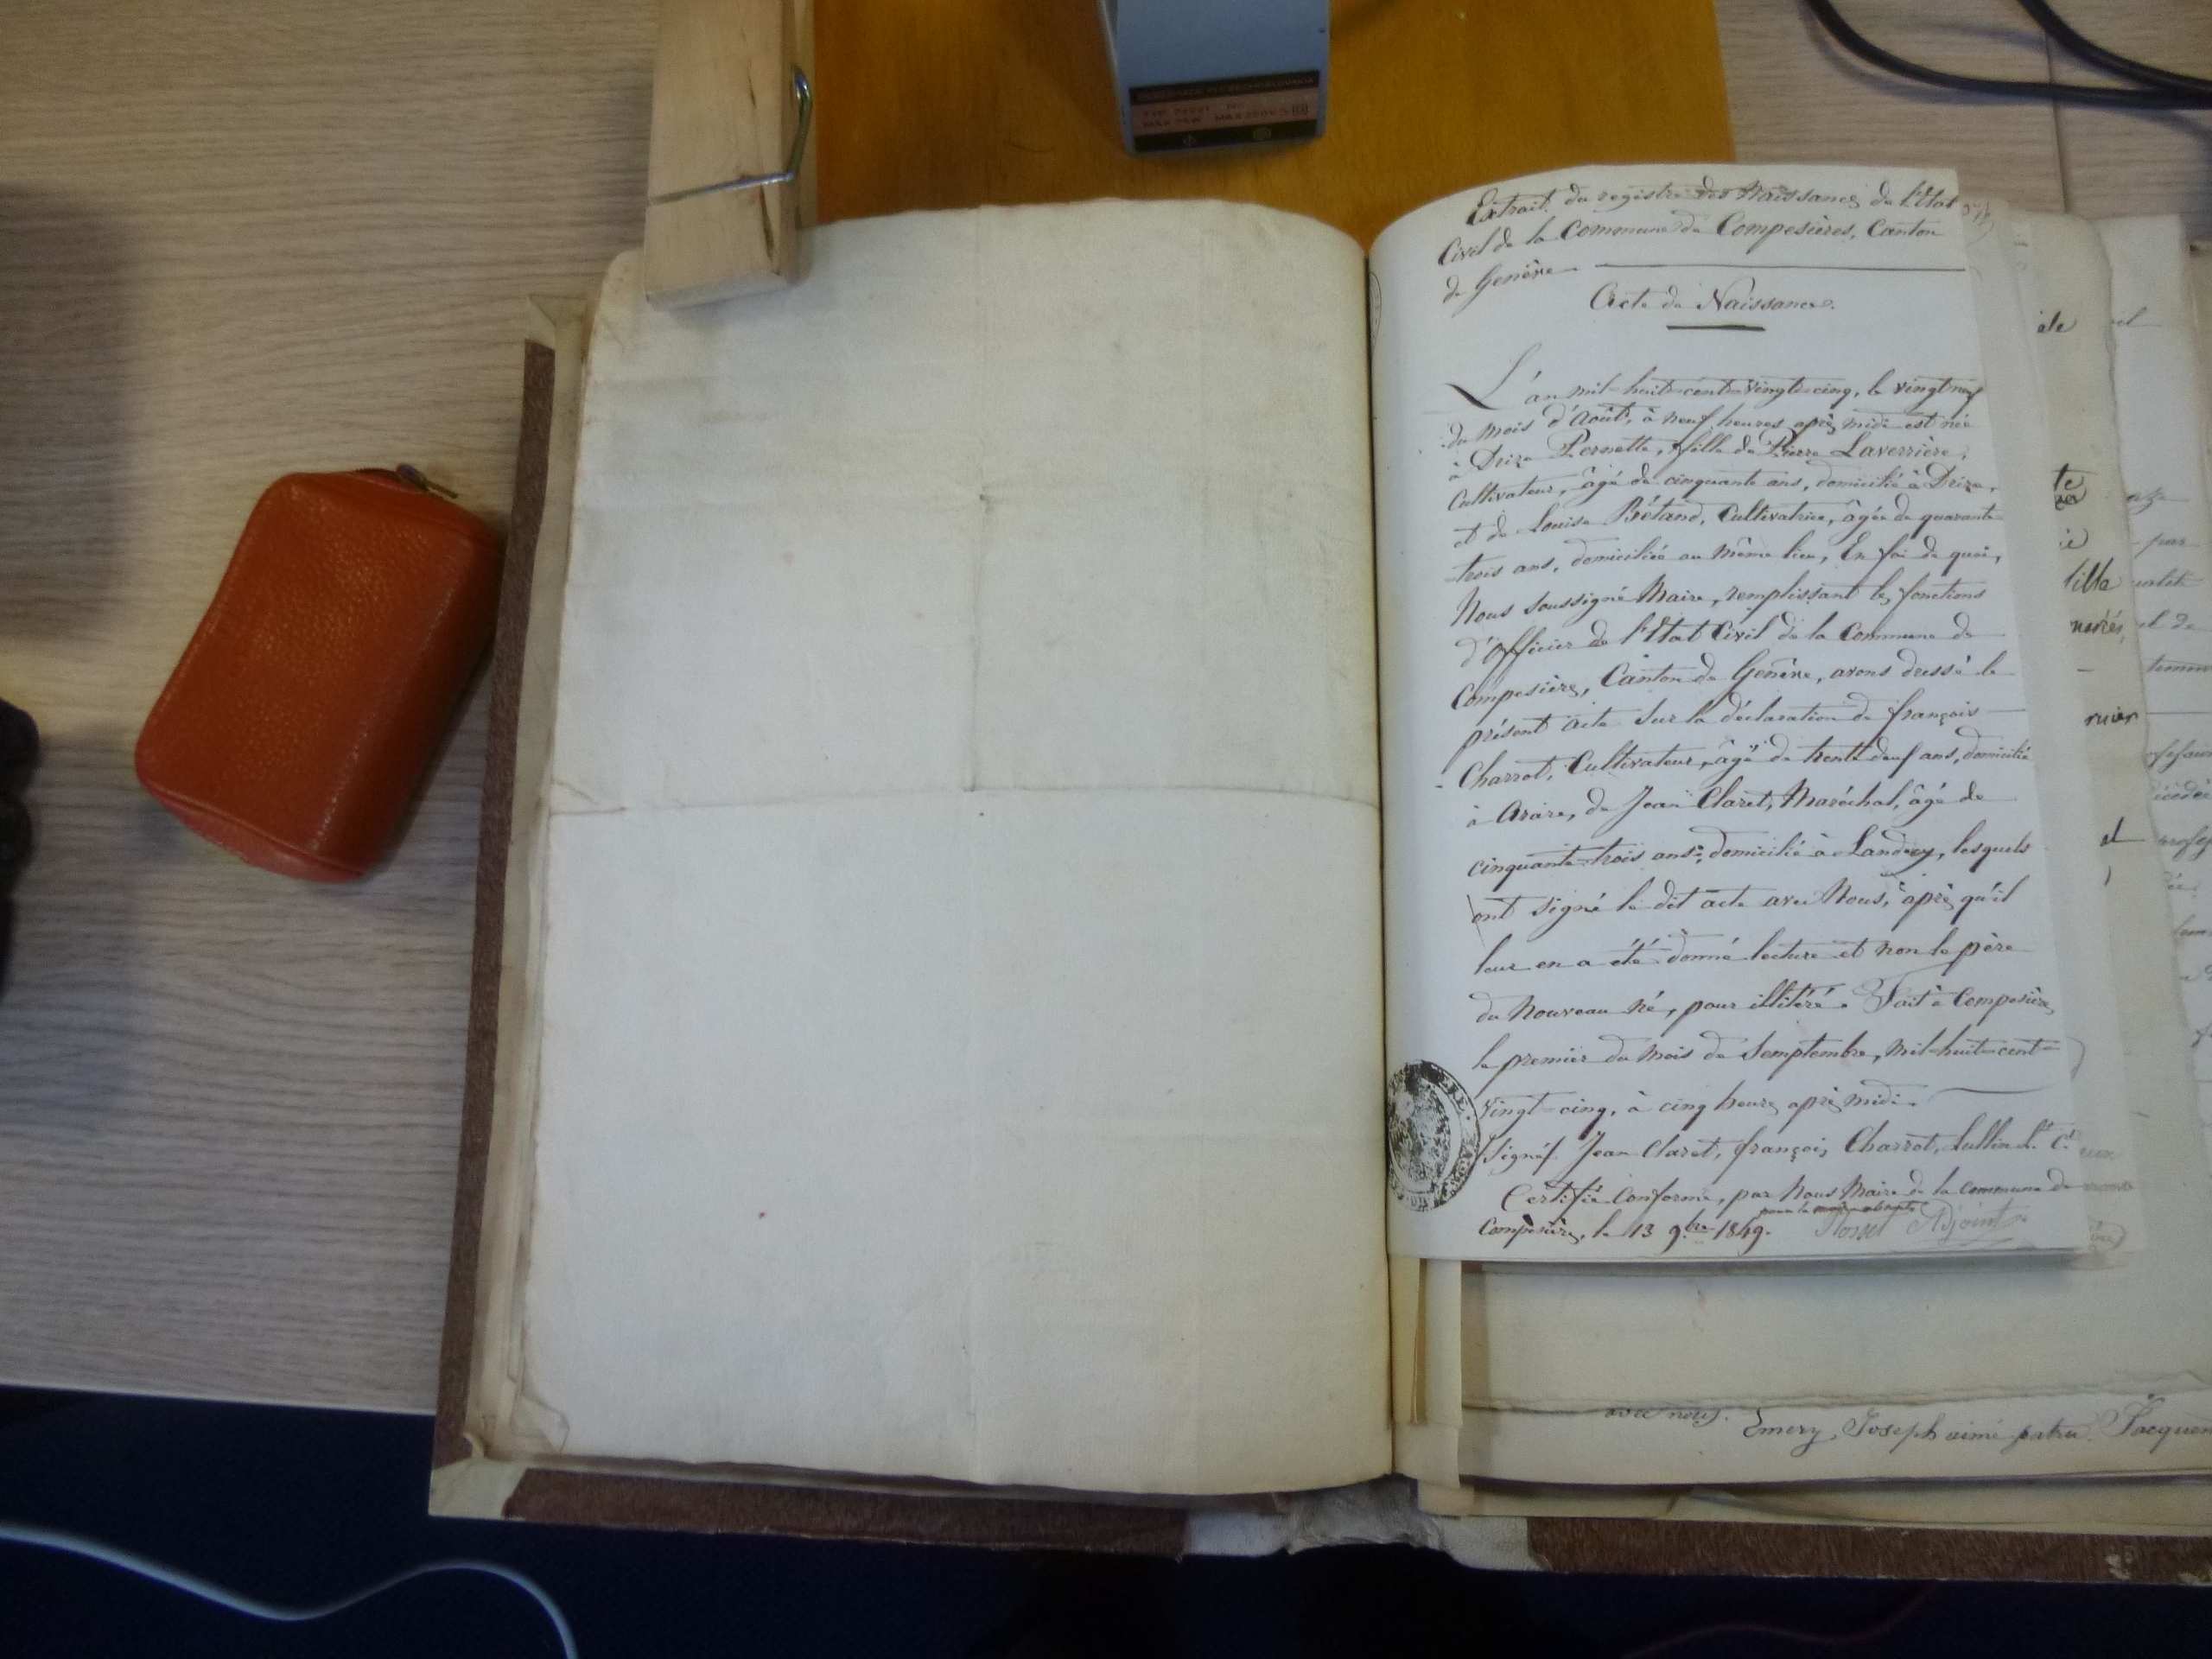 Extrait du registre des Naissances de l'Etat
Civil de la Commune de Compesières, Canton
de Genève
Acte de Naissance.
L'an mil-huit-cent-vingt-cinq, le vingt neuf
du mois d'Août, à neuf heures après midi est née
à Drize Pernette, fille de Pierre Laverrière,
Cultivateur, âgé de cinquante ans, domicilié à Drize,
et de Louise Bétand, Cultivatrice, âgée de quarante
trois ans, domiciliée au même lieu, En foi de quoi,
Nous soussigné Maire, remplissant les fonctions
d'Officier de l'Etat Civil de la Commune de
Compesières, Canton de Genève, avons dressé le
présent acte sur la déclaration de françois
Charrot, Cultivateur, âgé de trente deuf ans, domicilié
à Arare, de Jean Claret, Maréchal, âgé de
cinquante-trois ans, domicilié à Landecy, lesquels
ont signé le dit acte avec Nous, après qu'il
leur en a été donné lecture et non le père
du Nouveau né, pour illitéré. Fait à Compesières
le premier du mois de Semptembre, mil-huit-cent-
vingt-cinq, à cinq heures après midi.
Signés Jean Claret, françois Charrot, Lullin Lt. Cl.
Certifié Conforme, par Nous Maire de la commune de
pour le maire absent
Compesières, le 13 9bre 1849. Adjoint.
ale
te
lille
ruier
et
par
et de
avec nous.
Emery, Joseph aimé patru Jacquen